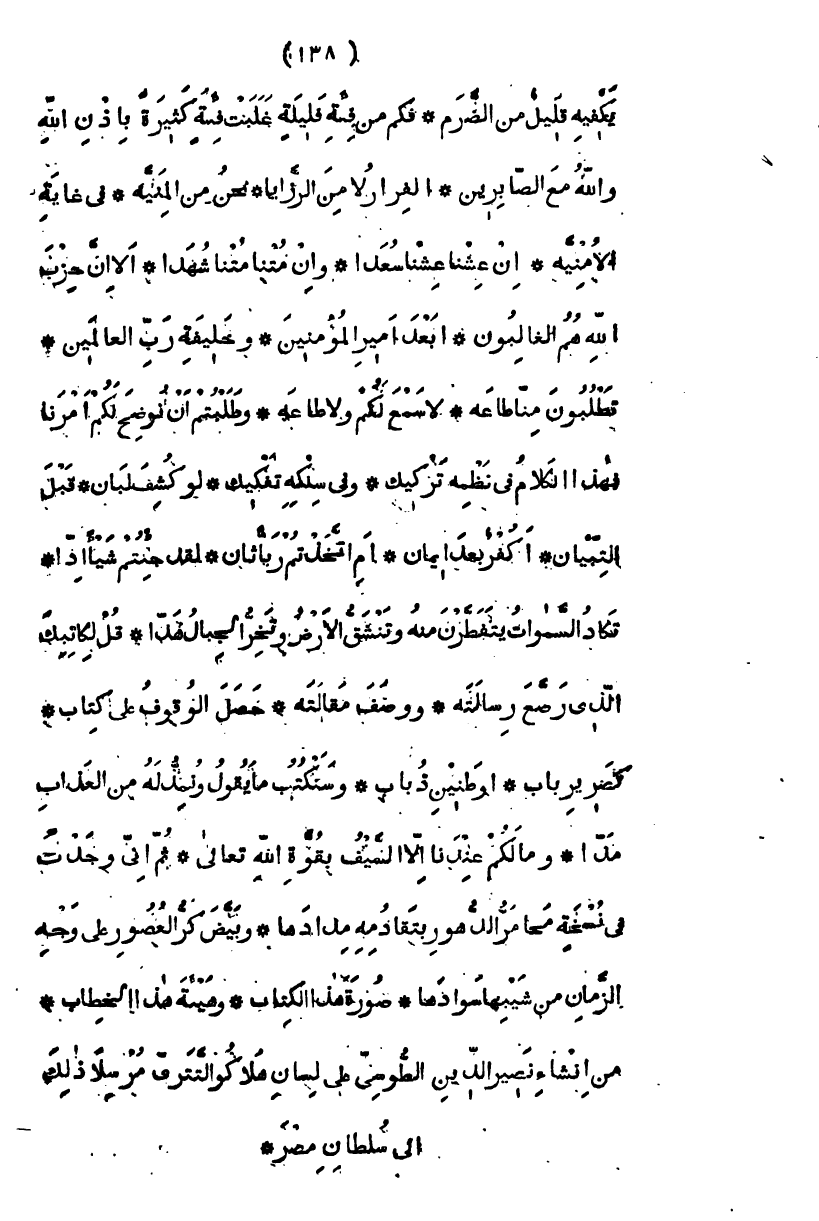 (١٣٨)
يَكْفِيهِ قَلِيلٌ من الضَّرَم * فكم من فِئَةٍ قَلِيلَةٍ غَلَبَتْ فِئَةً كَثِيرَةً بِاِذْنِ اللهِ
واللهُ مَعَ الصّابِرِين * الفِرارُ لا مِنَ الرَّزايا * نحنُ مِن المَنِيَّه * فى غايَةِ
الاُمْنِيَّه * اِنْ عِشْنا عِشْنا سُعَدا * وانْ مُتْنا مُتْنا شُهَدا * اَلا اِنَّ حِزْبَ
اللهِ هُمُ الغالِبُون * ابَعْدَ اَمِيرِ المُؤْمِنِينَ * وخَلِيفَةِ رَبِّ العالَمِين *
تَطْلُبُونَ مِنّا طاعَه * لا سَمْعَ لَكُمْ ولا طاعَه * وطَلَبْتُمْ اَنْ نُوضِحَ لَكُمْ اَمْرَنا
فهٰذا الكَلامُ فى نَظْمِه تَرْكِيك * وفى سِلْكِهِ تَفْكِيك * لو كُشِفَ لَبان * قَبْلَ
التِبْيان * اَكُفْرٌ بعدَ ايمان * اَمِ اتَّخَذْتُمْ رَبّاً ثان * لقد جِئْتُم شَيْأً اِدّا *
تَكادُ السَّمٰواتُ يتفَطَّرْنَ منه وتَنْشَقُّ الاَرْضُ وتَخِرُّ الجِبالُ هَدّا * قُلْ لِكاتِبِكَ
الَّذِى رَصَّعَ رِسالَتَه * ووصَفَ مَقالَتَه * حَصَلَ الوُقوفُ على كِتاب *
كَصَرِيرِ باب * اوطَنِينِ ذُباب * وسَنَكْتُبُ ما يَقُولُ ونَمُدُّ لَهُ مِن العَذابِ
مَدّا * ومالَكُمْ عِنْدَنا اِلّا السَّيْفُ بِقُوَّةِ اللهِ تعالىٰ * ثم اِنّى وجَدْتُ
فى نُسْخَةٍ مَحا مَرُّ الدُّهورِ بتَقادُمِهِ مِدادَها * وبَيَّضَ كَرُّ العُصُورِ على وَجْهِ
الزَّمانِ من شَيْبِها سَوادَها * صُورَةَ هٰذا الكِتاب * وهَيْئَةَ هٰذا الخِطاب *
من اِنْشاءِ نَصِيرِ الدِّينِ الطُّوسِىِّ على لِسانِ هَلاكُو التَّتَرىِّ مُرْسِلاً ذٰلِكَ
الى سُلْطانِ مِصْرَ *